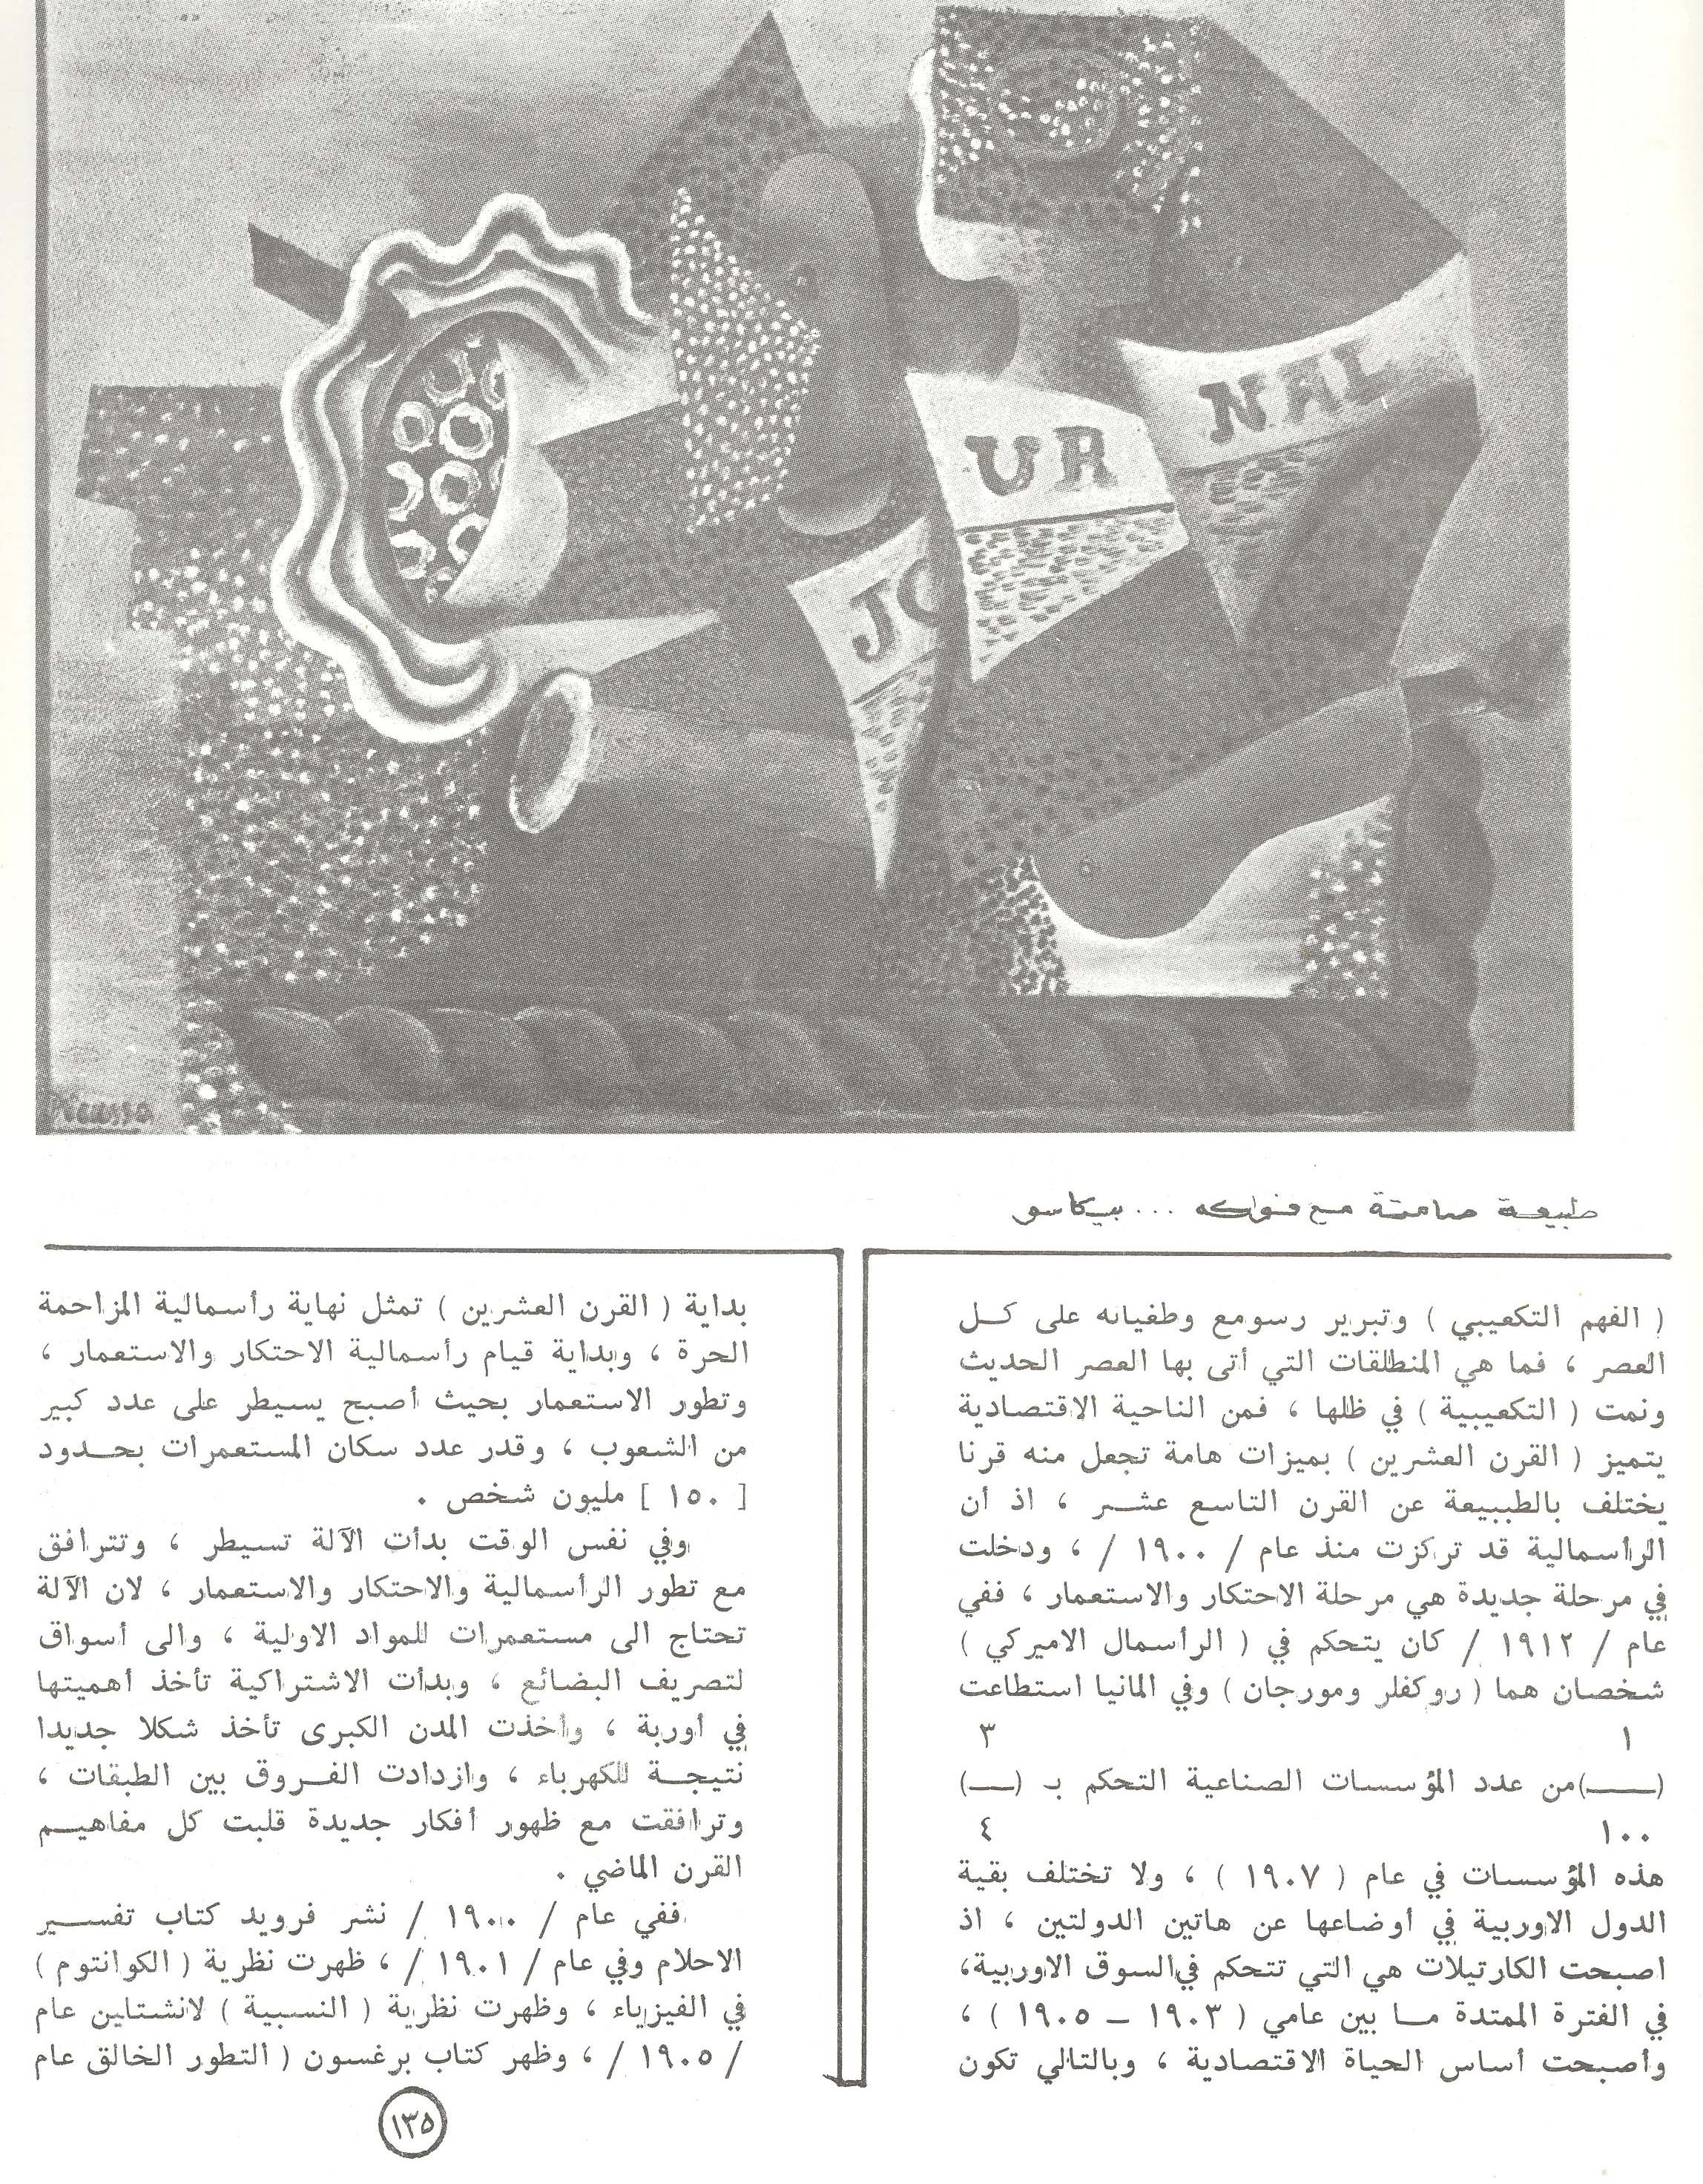 JO
UR
NAL
Picasso
طبيعة صامتة مع فواكه ... بيكاسو
( الفهم التكعيبي ) وتبرير رسومع وطغيانه على كل
العصر ، فما هي المنطلقات التي أتى بها العصر الحديث
ونمت ( التكعيبية ) في ظلها ، فمن الناحية الاقتصادية
يتميز ( القرن العشرين ) بميزات هامة تجعل منه قرنا
يختلف بالطبيبعة عن القرن التاسع عشر ، اذ أن
الرأسمالية قد تركزت منذ عام / ١٩٠٠ / ، ودخلت
في مرحلة جديدة هي مرحلة الاحتكار والاستعمار ، ففي
عام / ١٩١٢ / كان يتحكم في ( الرأسمال الاميركي )
شخصان هما ( روكفلر ومورجان ) وفي المانيا استطاعت
١ ٣
(ـــــ)من عدد المؤسسات الصناعية التحكم بـ (ـــ)
١٠٠ ٤
هذه المؤسسات في عام ( ١٩٠٧ ) ، ولا تختلف بقية
الدول الاوربية في أوضاعها عن هاتين الدولتين ، اذ
اصبحت الكارتيلات هي التي تتحكم في السوق الاوربية،
في الفترة الممتدة مــا بين عامي ( ١٩٠٣ ـ ١٩٠٥ ) ،
وأصبحت أساس الحياة الاقتصادية ، وبالتالي تكون
بداية ( القرن العشرين ) تمثل نهاية رأسمالية المزاحمة
الحرة ، وبداية قيام رأسمالية الاحتكار والاستعمار ،
وتطور الاستعمار بحيث أصبح يسيطر على عدد كبير
من الشعوب ، وقدر عدد سكان المستعمرات بحــدود
[ ١٥٠ ] مليون شخص .
وفي نفس الوقت بدأت الآلة تسيطر ، وتترافق
مع تطور الرأسمالية والاحتكار والاستعمار ، لان الآلة
تحتاج الى مستعمرات للمواد الاولية ، والى أسواق
لتصريف البضائع ، وبدأت الاشتراكية تأخذ أهميتها
في أوربة ، وأخذت المدن الكبرى تأخذ شكلا جديدا
نتيجــة للكهرباء ، وازدادت الفــروق بين الطبقات ،
وترافقت مع ظهور أفكار جديدة قلبت كل مفاهيــم
القرن الماضي .
ففي عام / ١٩٠٠ / نشر فرويد كتاب تفســير
الاحلام وفي عام / ١٩٠١ / ، ظهرت نظرية ( الكوانتوم )
في الفيزياء ، وظهرت نظرية ( النسبية ) لانشتاين عام
/ ١٩٠٥ / ، وظهر كتاب برغسون ( التطور الخالق عام
١٣٥